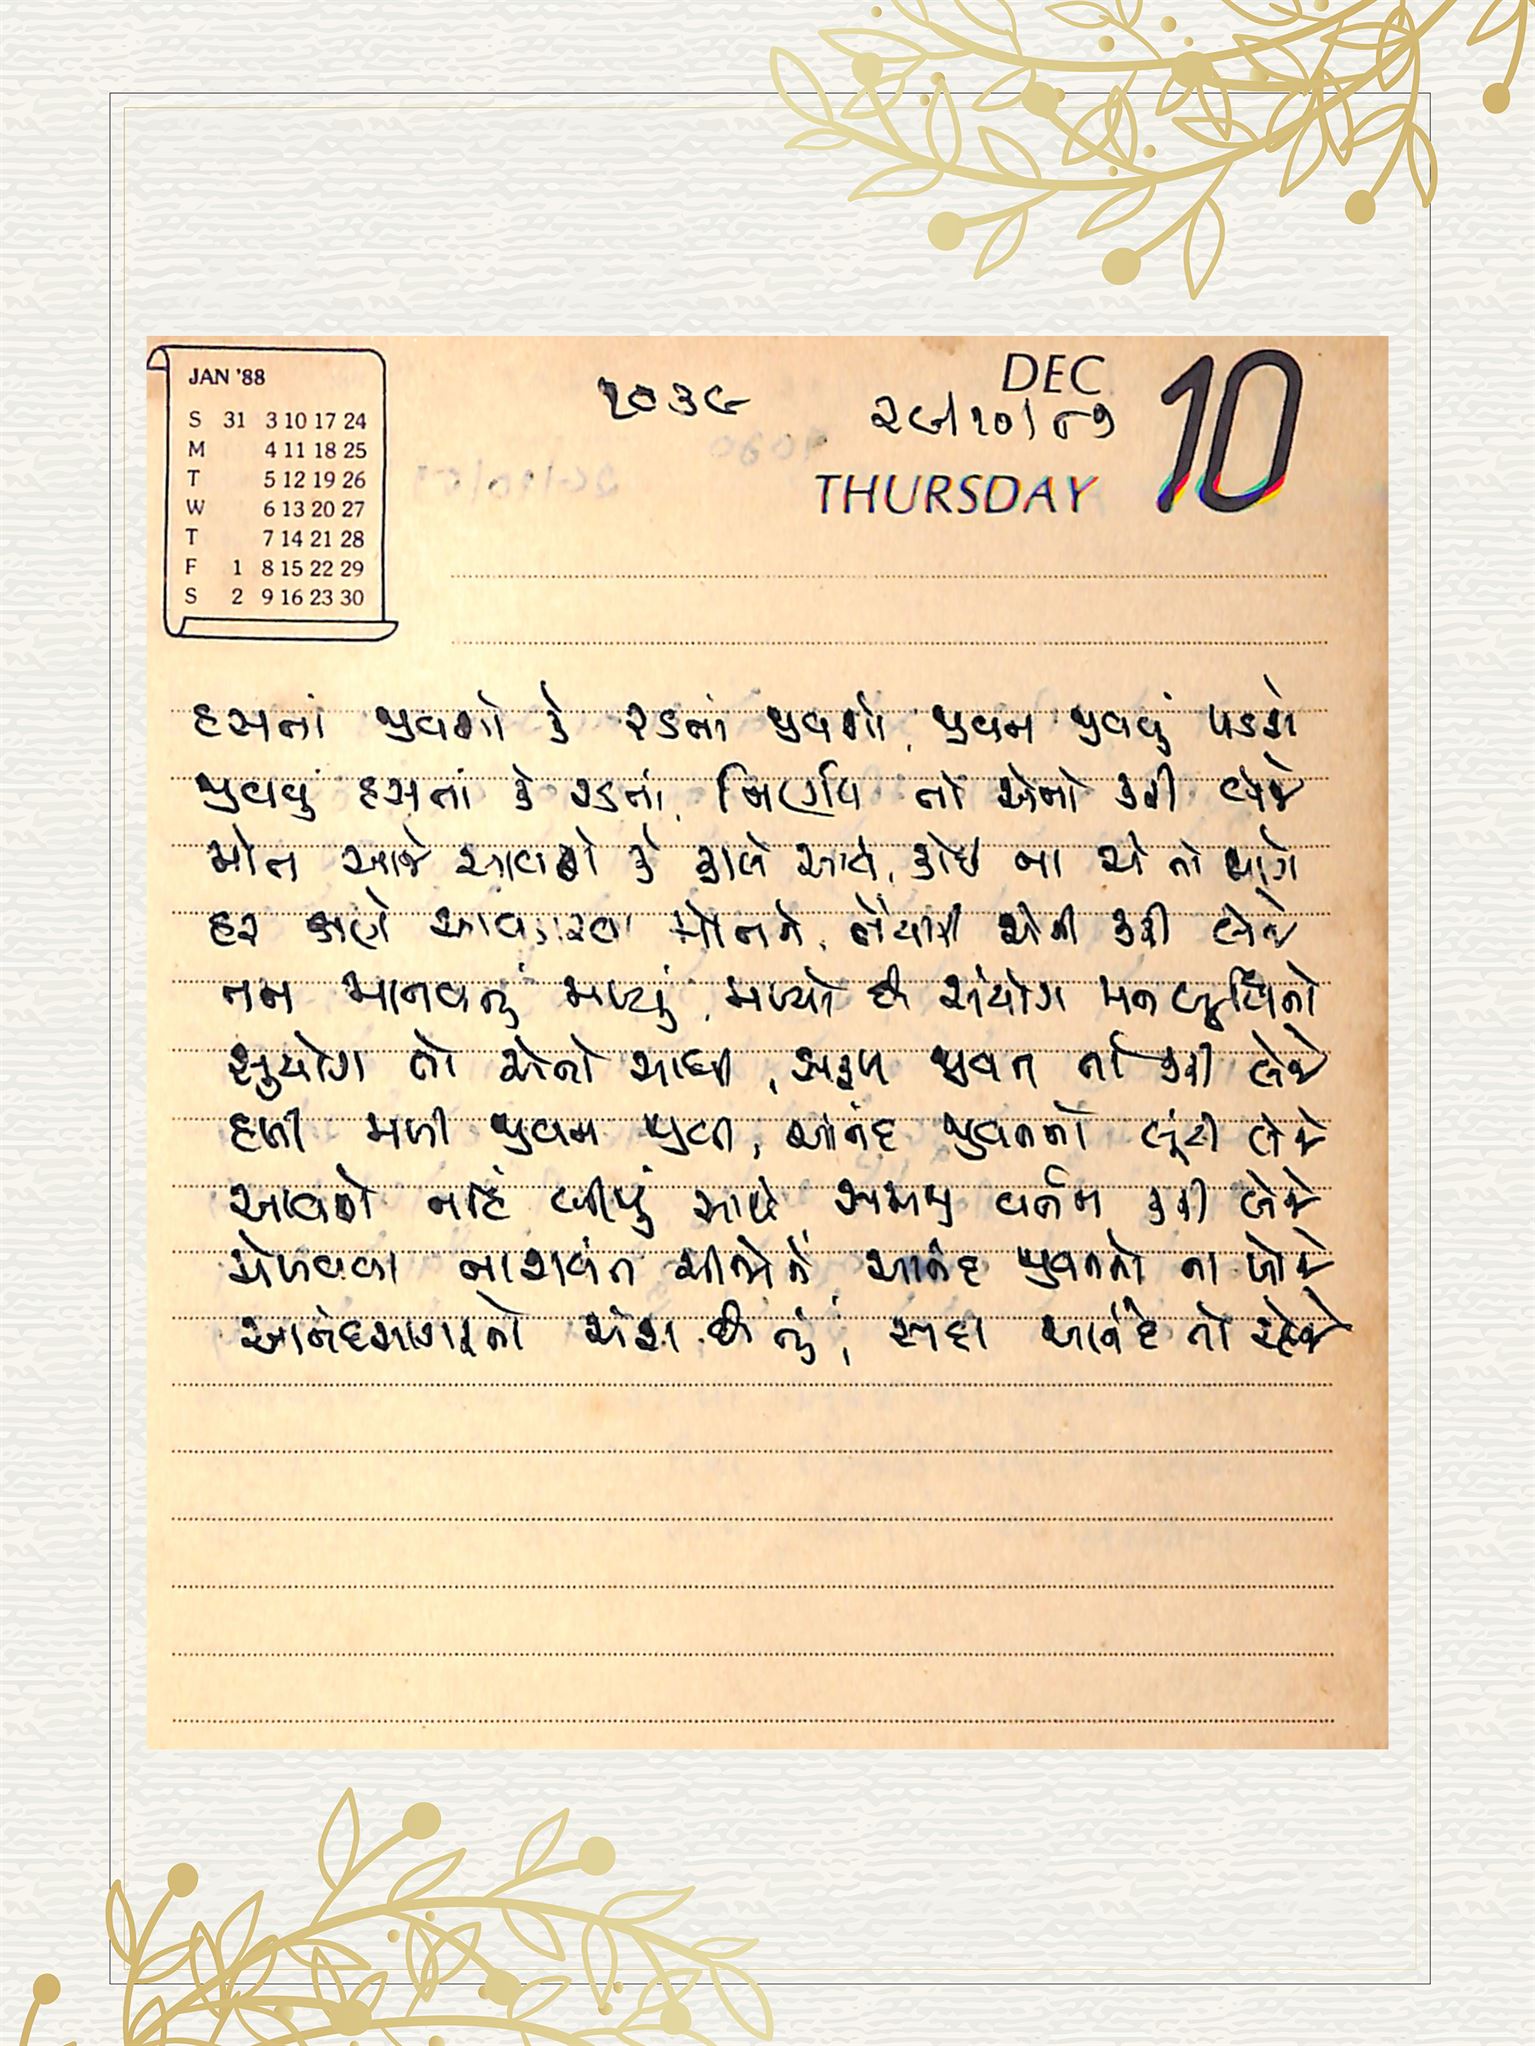 JAN '88
S 31 3 10 17 24
M 4 11 18 25
T 5 12 19 26
W 6 13 20 27
T 7 14 21 28
F 1 8 15 22 29
S 2 9 16 23 30
૧૦૩૯
DEC 10
૨૯/૧૦/૮૭
THURSDAY
હસતાં જીવશો કે રડતાં જીવશો, જીવન જીવવું પડશે
જીવવું હસતાં કે રડતાં, નિર્ણય તો એનો કરી લેજે
મોત આજે આવશે કે કાલે આવે, કોઈ ના એ તો જાણે
હર ક્ષણે આવકારવા મોતને, તૈયારી એની કરી લેજે
તન માનવનું મળ્યું, મળ્યો છે સંયોગ મન બુદ્ધિનો
સુયોગ તો એનો સાધી, સફળ જીવન તો કરી લેજે
હળી મળી જીવન જીવી, આનંદ જીવનનો લૂંટી લેજે
આવશે નહિં બીજું સાથે, સમજી વર્તન કરી લેજે
મેળવવા નાશવંત ચીજોને, આનંદ જીવનનો ના ખોજે
આનંદસાગરનો અંશ છે તું, સદા આનંદે તો રહેજે